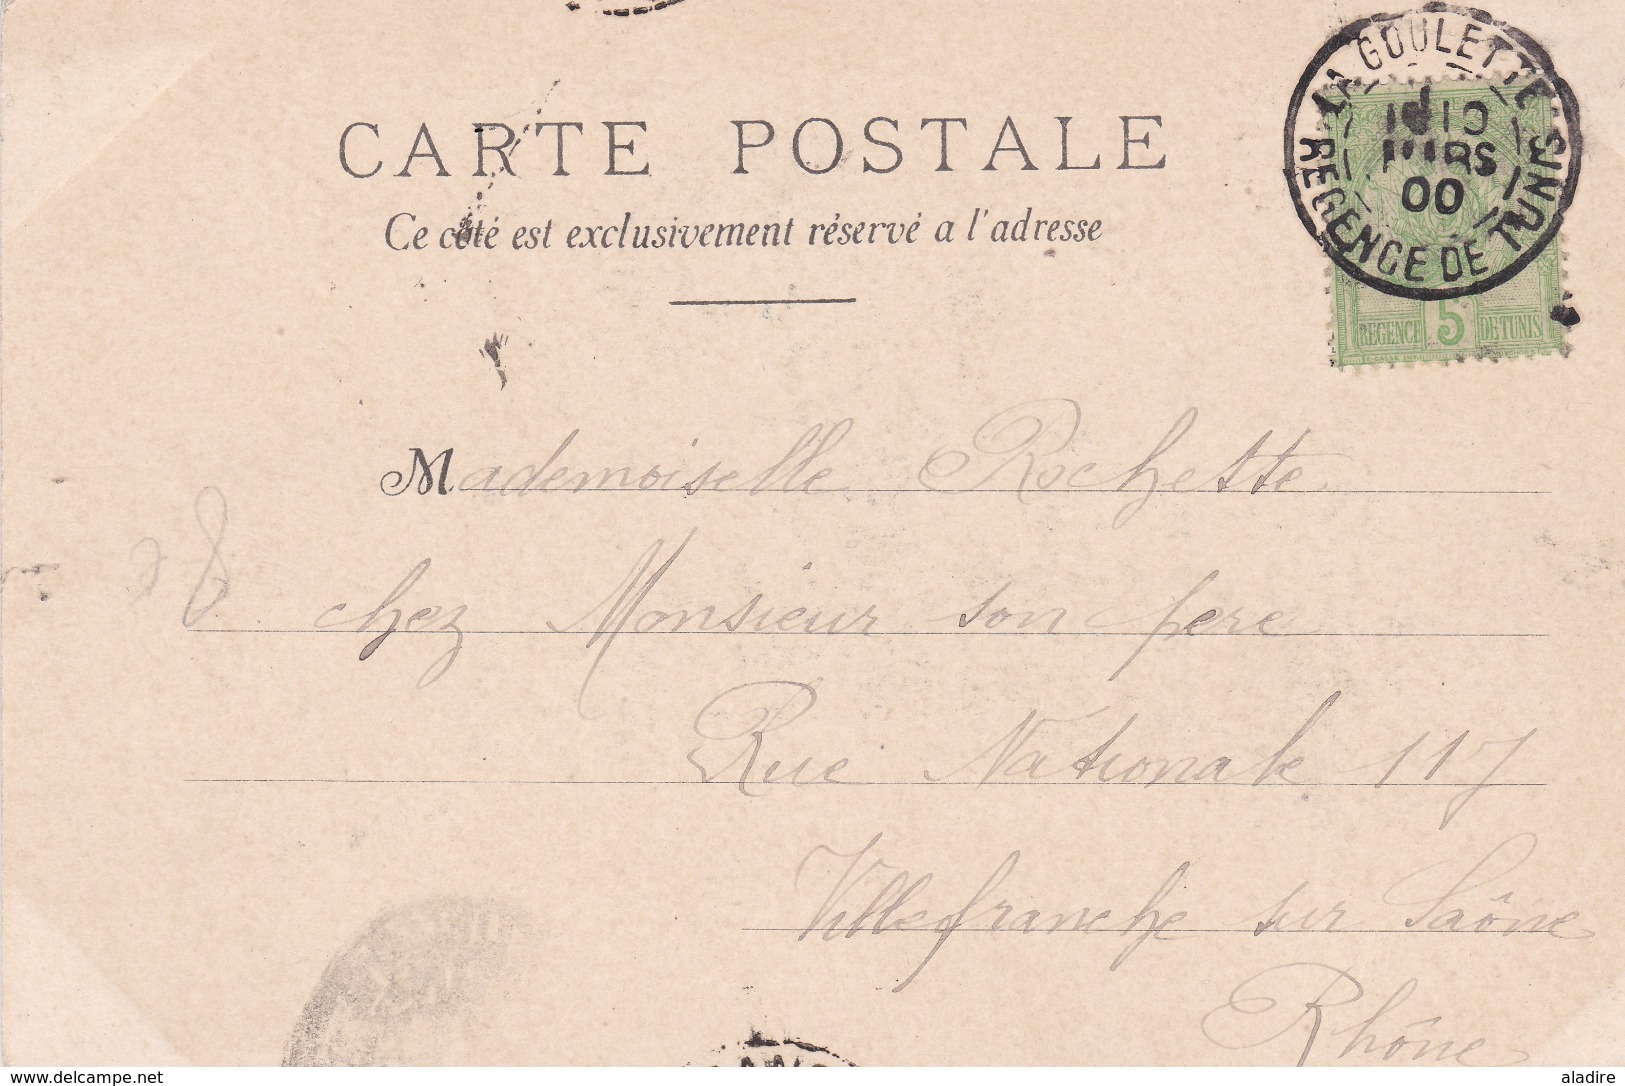 CARTE POSTALE
Ce côté est exclusivement réservé a l'adresse
LA GOULETTE
10
MARS
00
REGENCE DE TUNIS
REGENCE 5 DE TUNIS
Mademoiselle Rochette
chez Monsieur son pere
Rue Nationale 117
Villefranche sur Saône
Rhône
www.delcampe.net
aladire